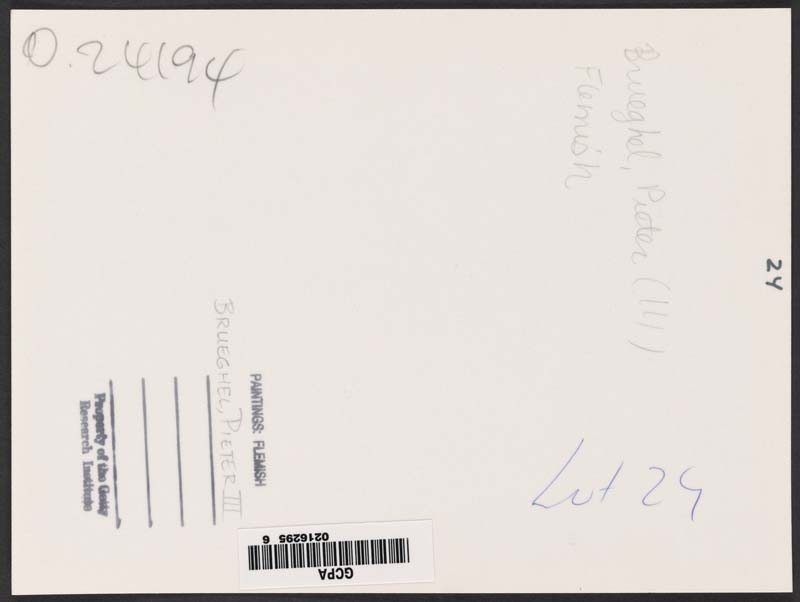 O.24194
Brueghel, Pieter (III)
Flemish
24
PAINTINGS: FLEMISH
BRUEGHEL, PIETER III
Property of the Getty
Research Institute
Lut 24
GCPA
0216295 6